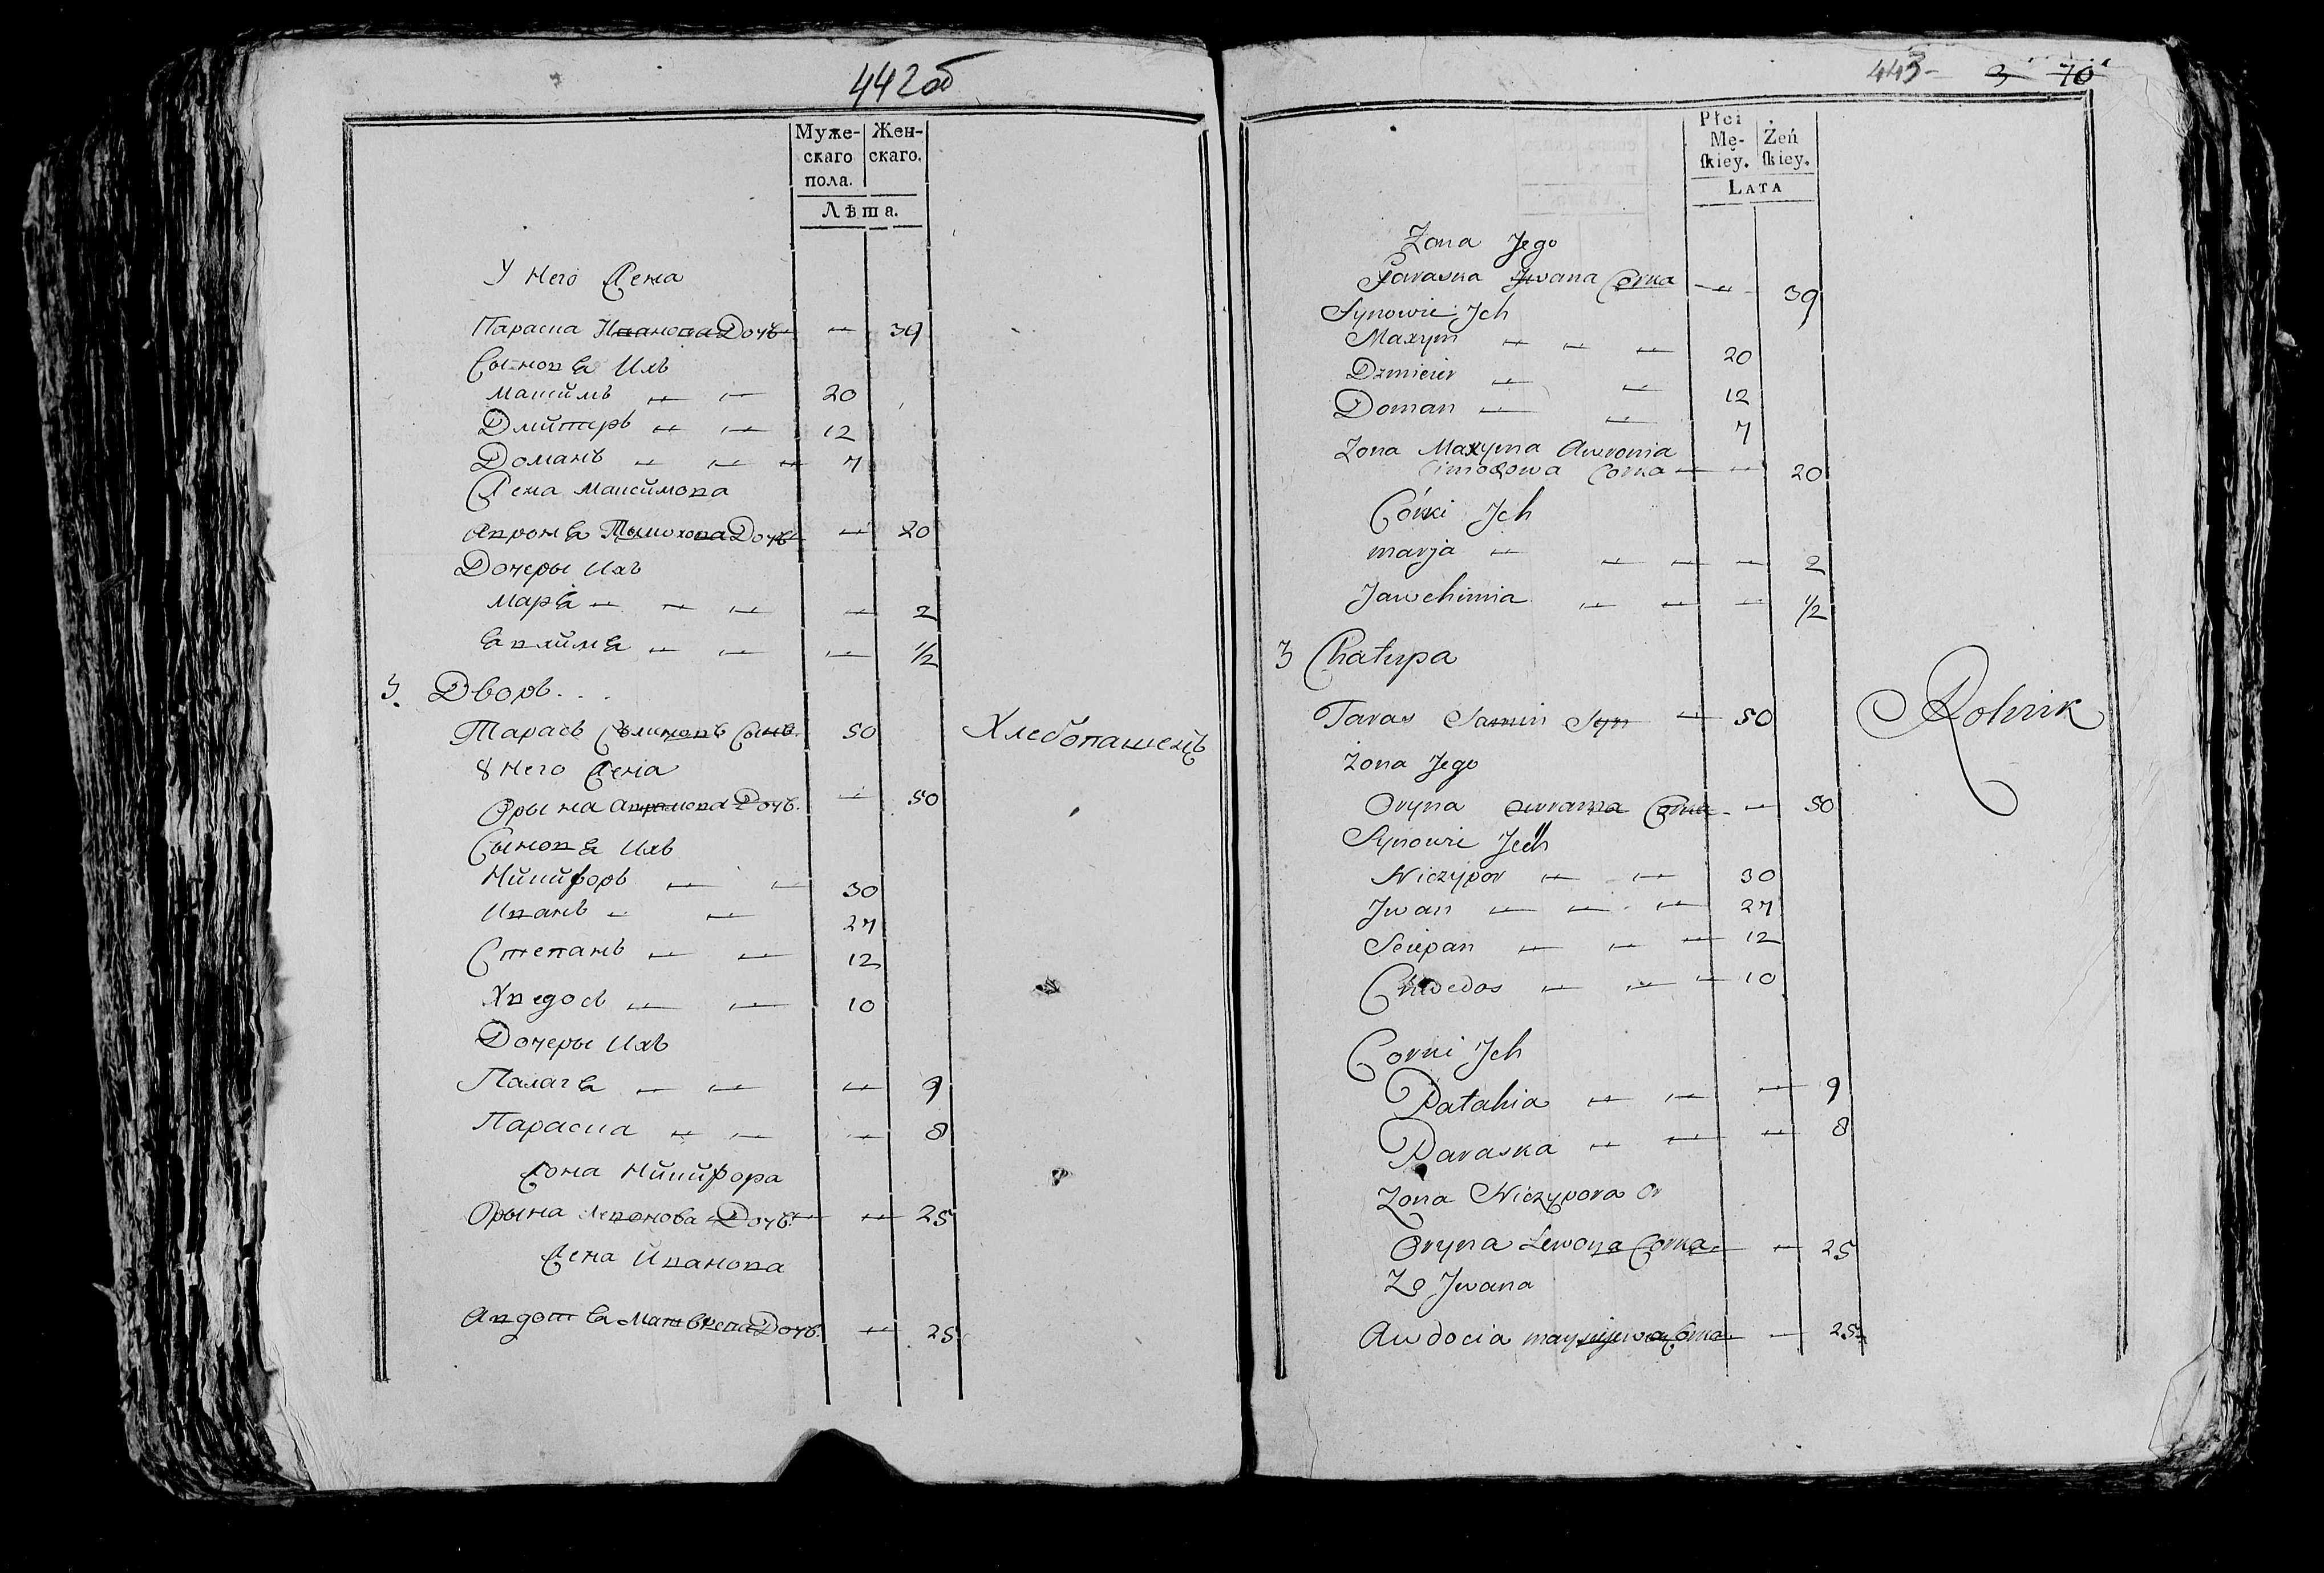 442об
Муже-
скаго
пола.
Жен-
скаго.
Лѣта.
У Него Жена
Параска Иванова Дочь — 39
Сыновѣ Ихъ
Максимъ 20
Дмитеръ 12
Доманъ 7
Жена Максимова
Авронѣ Тимохова Дочь — 20
Дочеры Ихъ
Марѣ — 2
Евхимѣ — 1/2
3. Дворъ
Тарасъ Сѣмионовъ Сынъ. 50 Хлебопашецъ
У Него Жена
Орына Аврамова Дочь. — 50
Сыновѣ Ихъ
Никифоръ 30
Иванъ 27
Степанъ 12
Хведосъ 10
Дочеры Ихъ
Палагѣ — 9
Параска — 8
Жона Никифора
Орына Левонова Дочь. — 25
Жена Иванова
Авдотѣ Матвѣева Дочь. — 25
443 3 70
Płci
Mę-
ſkiey.
Żeń
ſkiey.
LATA
Żona Jego
Paraska Jwana Corka — 39
Synowie Jch
Maxym 20
Dzmicier 12
Doman 7
Zona Maxyma Awronia
Cimochowa Corka — 20
Córki Jch
marja — 2
Jawchimia — 1/2
3 Chałupa
Taras Samin Syn — 50 Rolnik
Żona Jego
Oryna Awrama Corka — 50
Synowie Jch
Niczypor 30
Jwan 27
Sciepan 12
Chwedos 10
Corki Jch
Pałahia — 9
Paraska — 8
Zona Niczypora Or
Oryna Lewona Corka — 25
Zo Jwana
Awdocia Corka — 25